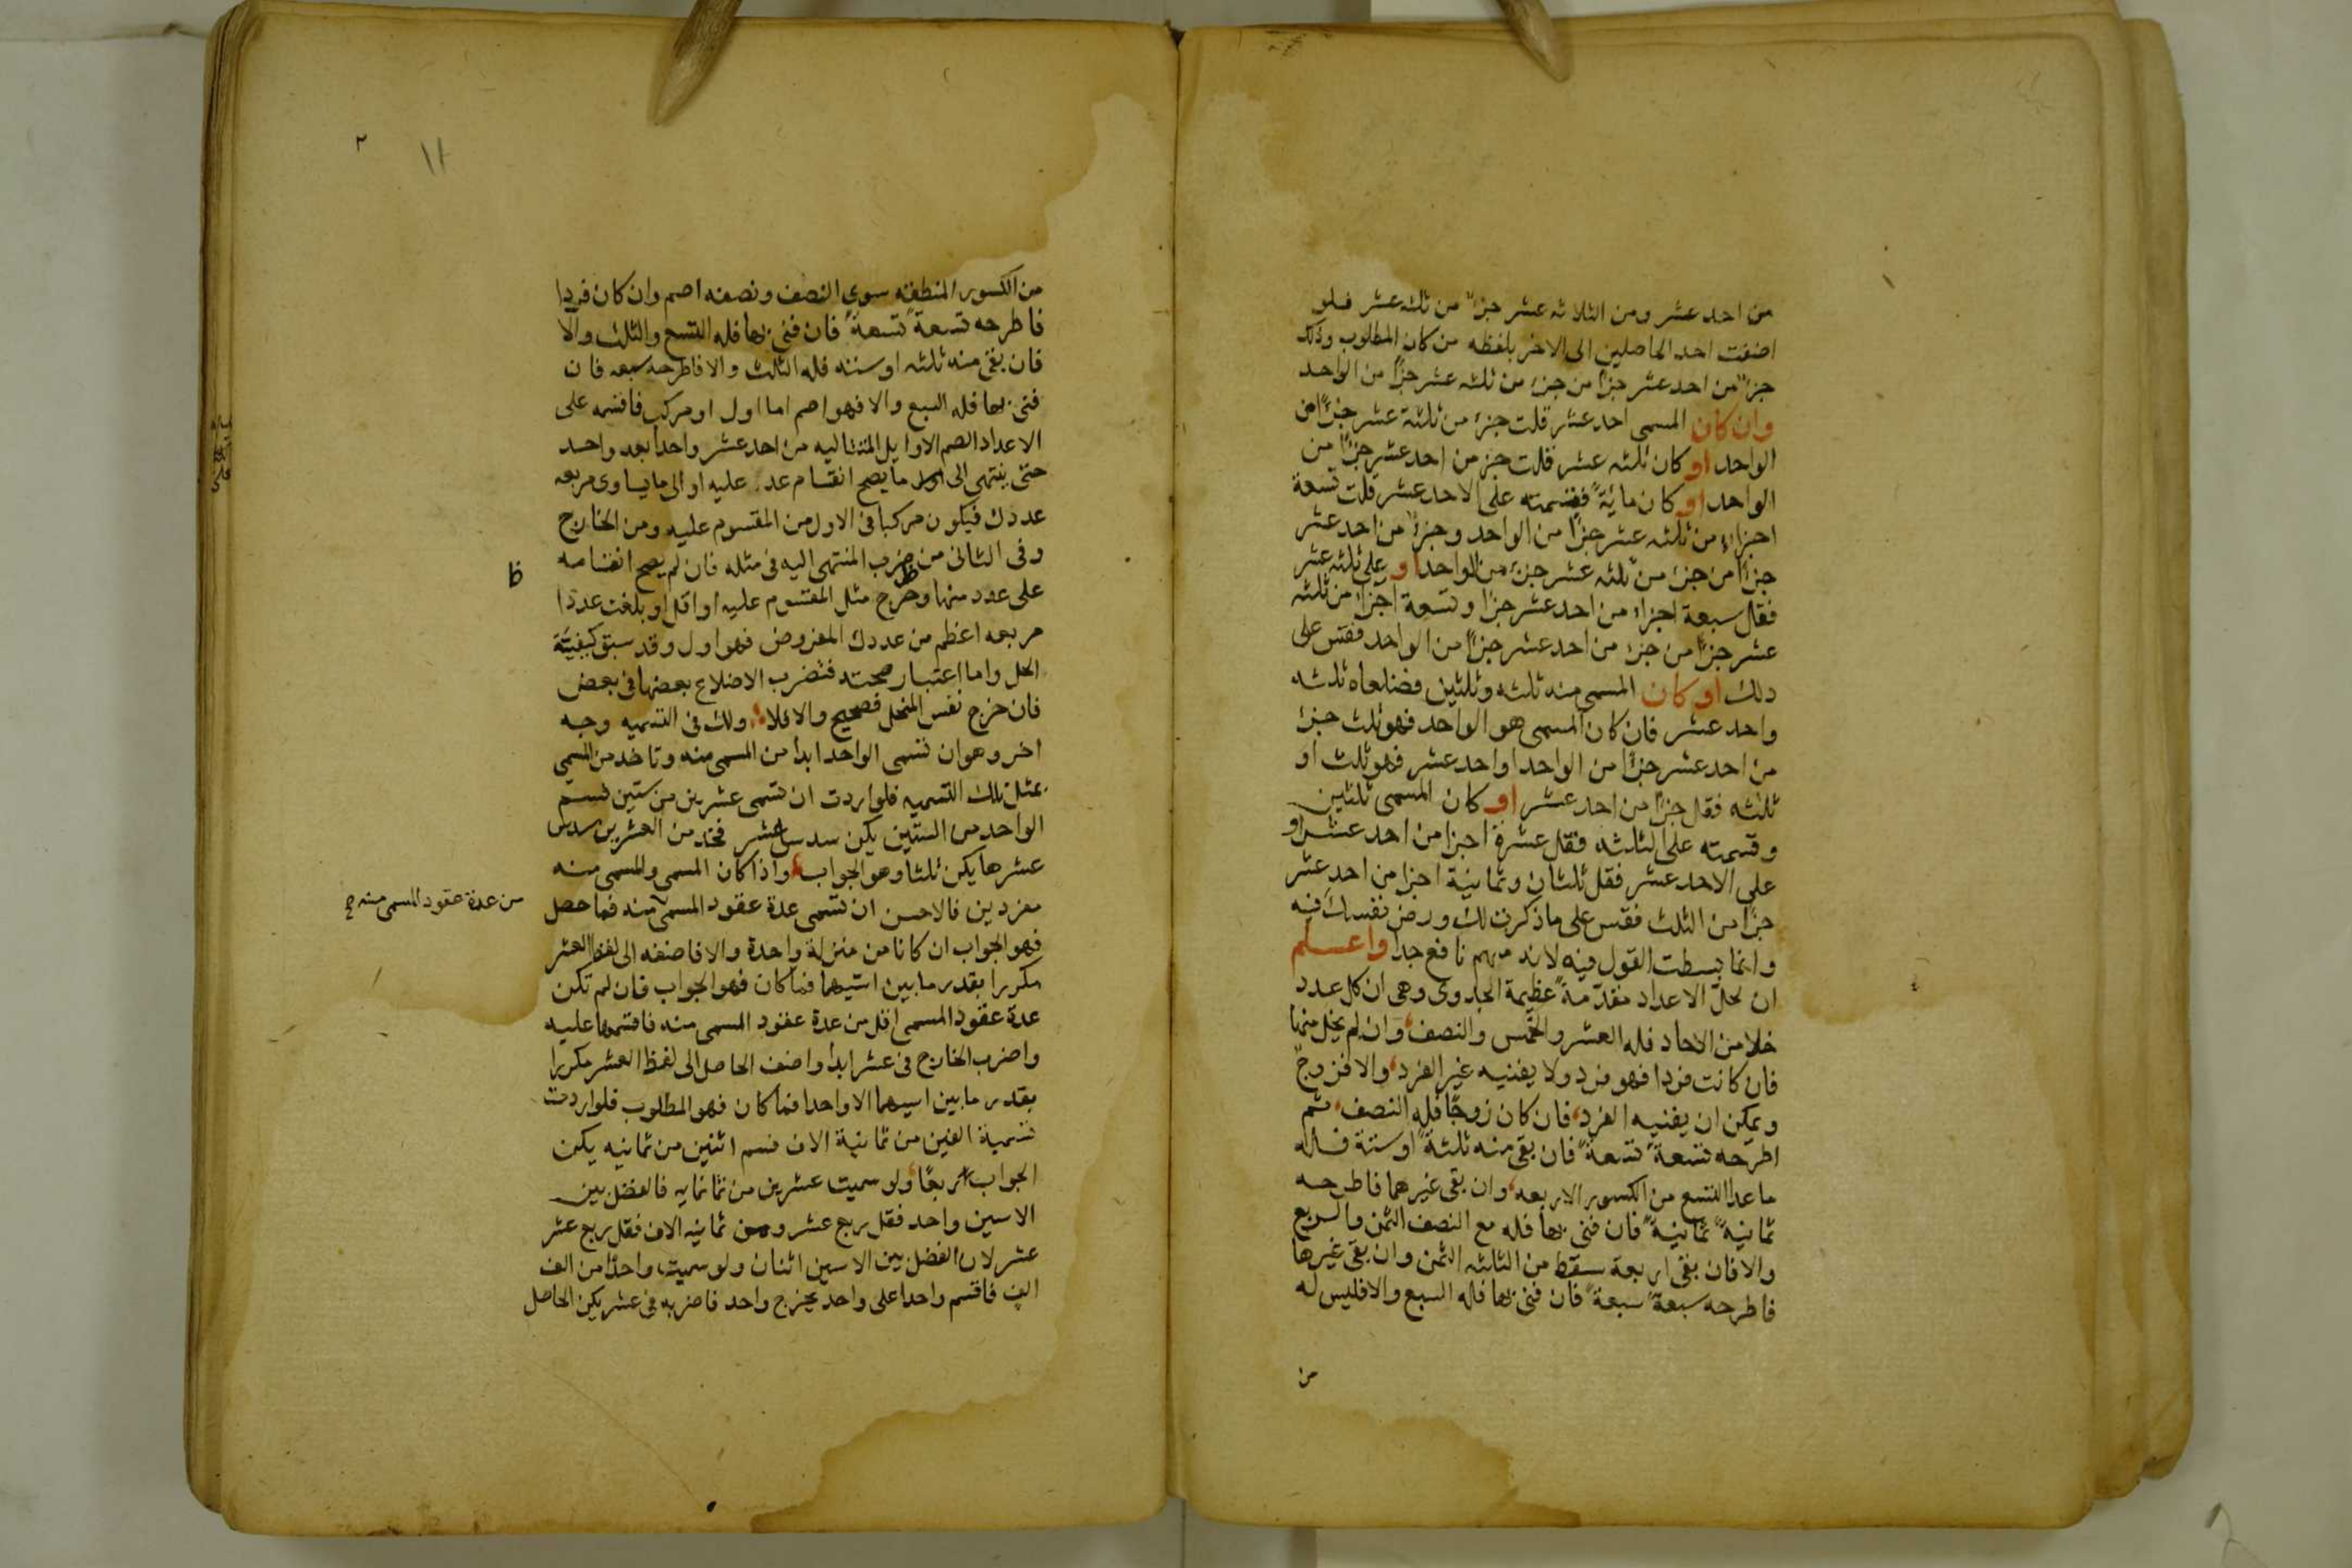 من احد عشر ومن الثلاثه عشر جزءً من ثلثه عشر فلو
اضفت احد الحاصلين الى الاخر بلفظه من كان المطلوب وذلك
جزءً من احد عشر جزءًا من جزء من ثلثه عشر جزءًا من الواحد
وان كان المسمى احد عشر قلت جزء من ثلثة عشر جزءًا من
الواحد او كان ثلثه عشر قلت جزء من احد عشر جزءًا من
الواحد او كان ماية فقسمته على الاحد عشر قلت تسعة
اجزاء من ثلثه عشر جزءًا من الواحد وجزءً من احد عشر
جزءًا من جزء من ثلثه عشر جزء من الواحد او على ثلثه عشر
فقل سبعة اجزاء من احد عشر جزءًا وتسعة اجزاء من ثلثه
عشر جزءًا من جزء من احد عشر جزءًا من الواحد فقس على
ذلك او كان المسمى منه ثلثه وثلثين فضلعاه ثلثه
واحد عشر فان كان المسمى هو الواحد فهو ثلث جزء
من احد عشر جزءًا من الواحد او احد عشر فهو ثلث او
ثلثه فقل جزءًا من احد عشر او كان المسمى ثلثين
وقسمته على الثلثه فقل عشرة اجزا من احد عشر او
على الاحد عشر فقل ثلثان وثمانية اجزا من احد عشر
جزءًا من الثلث فقس على ما ذكرت لك ورض نفسك فيه
وانما بسطت القول فيه لانه مهم نافع جدا واعلم
ان لحل الاعداد مقدمة عظيمة الجدوى وهى ان كل عدد
خلا من الاحاد فله العشر والخمس والنصف وان لم يخل منها
فان كانت فردا فهو فرد ولا يفنيه غير الفرد والا فزوج
ويمكن ان يفنيه الفرد فان كان زوجًا فله النصف ثم
اطرحه تسعة تسعة فان بقى منه ثلثة او ستة فله
ما عدا التسع من الكسور الاربعه وان بقى غيرهما فاطرحه
ثمانية ثمانية فان فنى بها فله مع النصف الثمن والربع
والا فان بقى اربعة سقط من الثلثه الثمن وان بقى غيرها
فاطرحه سبعة سبعة فان فنى بها فله السبع والا فليس له
من
٢
١١
من الكسور المنطقه سوى النصف ونصفه اصم وان كان فردا
فاطرحه تسعة تسعة فان فنى بها فله التسع والثلث والا
فان بقى منه ثلثه او سته فله الثلث والا فاطرحه سبعه فان
فنى بها فله السبع والا فهو اصم اما اول او مركب فاقسمه على
الاعداد الصم الاوايل المتتاليه من احد عشر واحدا بعد واحد
حتى ينتهى الى ما يصح انقسام عدد عليه او الى ما يساوى مربعه
عددك فيكون مركبا فى الاول من المقسوم عليه ومن الخارج
وفى الثانى من ضرب المنتهى اليه فى مثله فان لم يصح انقسامه
ظ
على عدد منها وخرج مثل المقسوم عليه او اقل او بلغت عددا
مربعه اعظم من عددك المفروض فهو اول وقد سبق كيفية
الحل واما اعتبار صحته فتضرب الاضلاع بعضها فى بعض
فان خرج نفس المنحل فصحيح والا فلا ولك فى التسميه وجه
اخر وهو ان تسمى الواحد ابدا من المسمى منه وتاخذ من المسمى
بمثل تلك التسميه فلو اردت ان تسمى عشرين من ستين فسم
الواحد من الستين يكن سدس عشر فخذ من العشرين سدس
عشرها يكن ثلثا وهو الجواب واذا كان المسمى والمسمى منه
مفردين فالاحسن ان تسمى عدة عقود المسمى منه فما حصل
من عدة عقود المسمى منه
فهو الجواب ان كانا من منزلة واحدة والا فاضفه الى لفظ العشر
مكررا بقدر ما بين اسيهما فما كان فهو الجواب فان لم تكن
عدة عقود المسمى اقل من عدة عقود المسمى منه فاقسمها عليه
واضرب الخارج فى عشر ابدا واضف الحاصل الى لفظ العشر مكررا
بقدر ما بين اسيهما الا واحدا فما كان فهو المطلوب فلو اردت
تسمية الفين من ثمانية الاف فسم اثنين من ثمانيه يكن
الجواب ربعًا ولو سميت عشرين من ثمانمايه فالفضل بين
الاسين واحد فقل ربع عشر ومن ثمانيه الاف فقل ربع عشر
عشر لان الفضل بين الاسين اثنان ولو سميت واحدًا من الف
الف فاقسم واحدا على واحد يخرج واحد فاضربه فى عشر يكن الحاصل